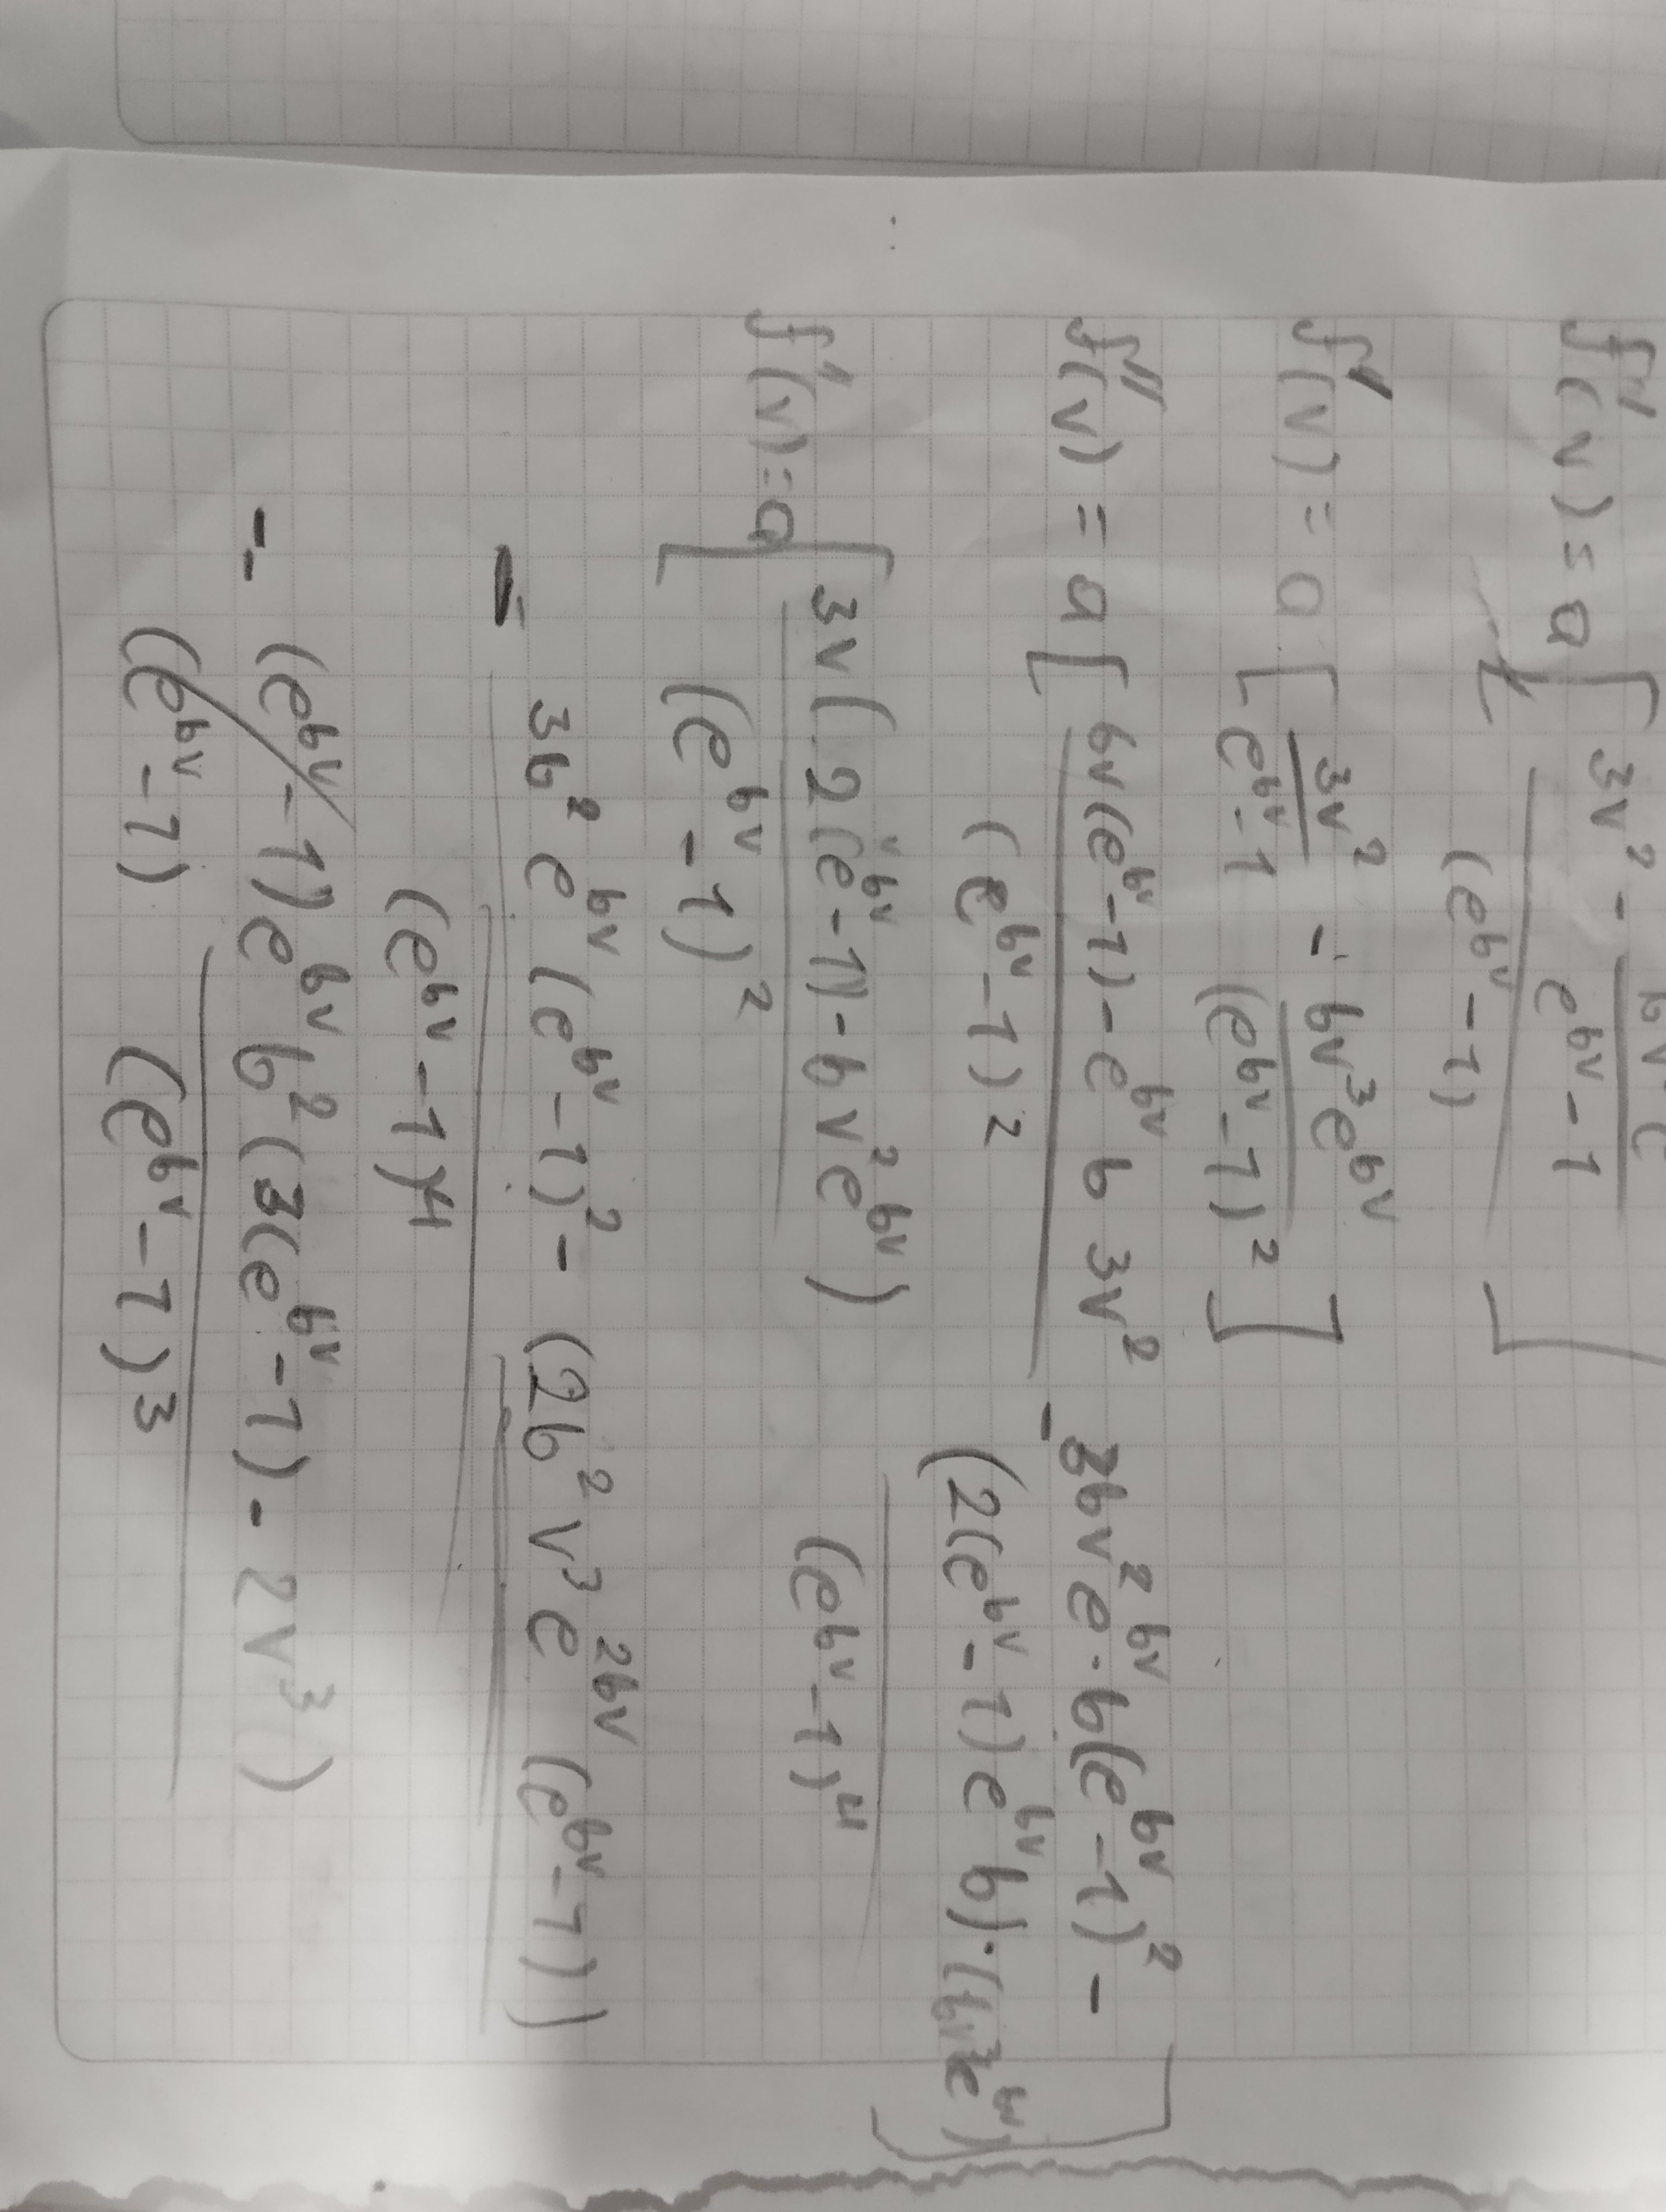 f''(v) = a [ 3v² - / e^{bv} - 1
(e^{bv} - 1) ]
f''(v) = a [ 3v² / e^{bv} - 1 - bv³e^{bv} / (e^{bv} - 1)² ]
f''(v) = a [ 6v(e^{bv} - 1) - e^{bv} b 3v² / (e^{bv} - 1)² - 3bv² e^{bv} · b(e^{bv} - 1)² - (2(e^{bv} - 1) e^{bv} b) · (bv³e^{bv}) / (e^{bv} - 1)⁴ ]
f'(v) = a [ 3v (2(e^{bv} - 1) - bv²e^{bv}) / (e^{bv} - 1)²
- 3b² e^{bv} (e^{bv} - 1)² - (2b² v³ e^{2bv} (e^{bv} - 1)) / (e^{bv} - 1)⁴
-- (e^{bv} - 1) e^{bv} b² (3(e^{bv} - 1) - 2v³) / (e^{bv} - 1) (e^{bv} - 1)³